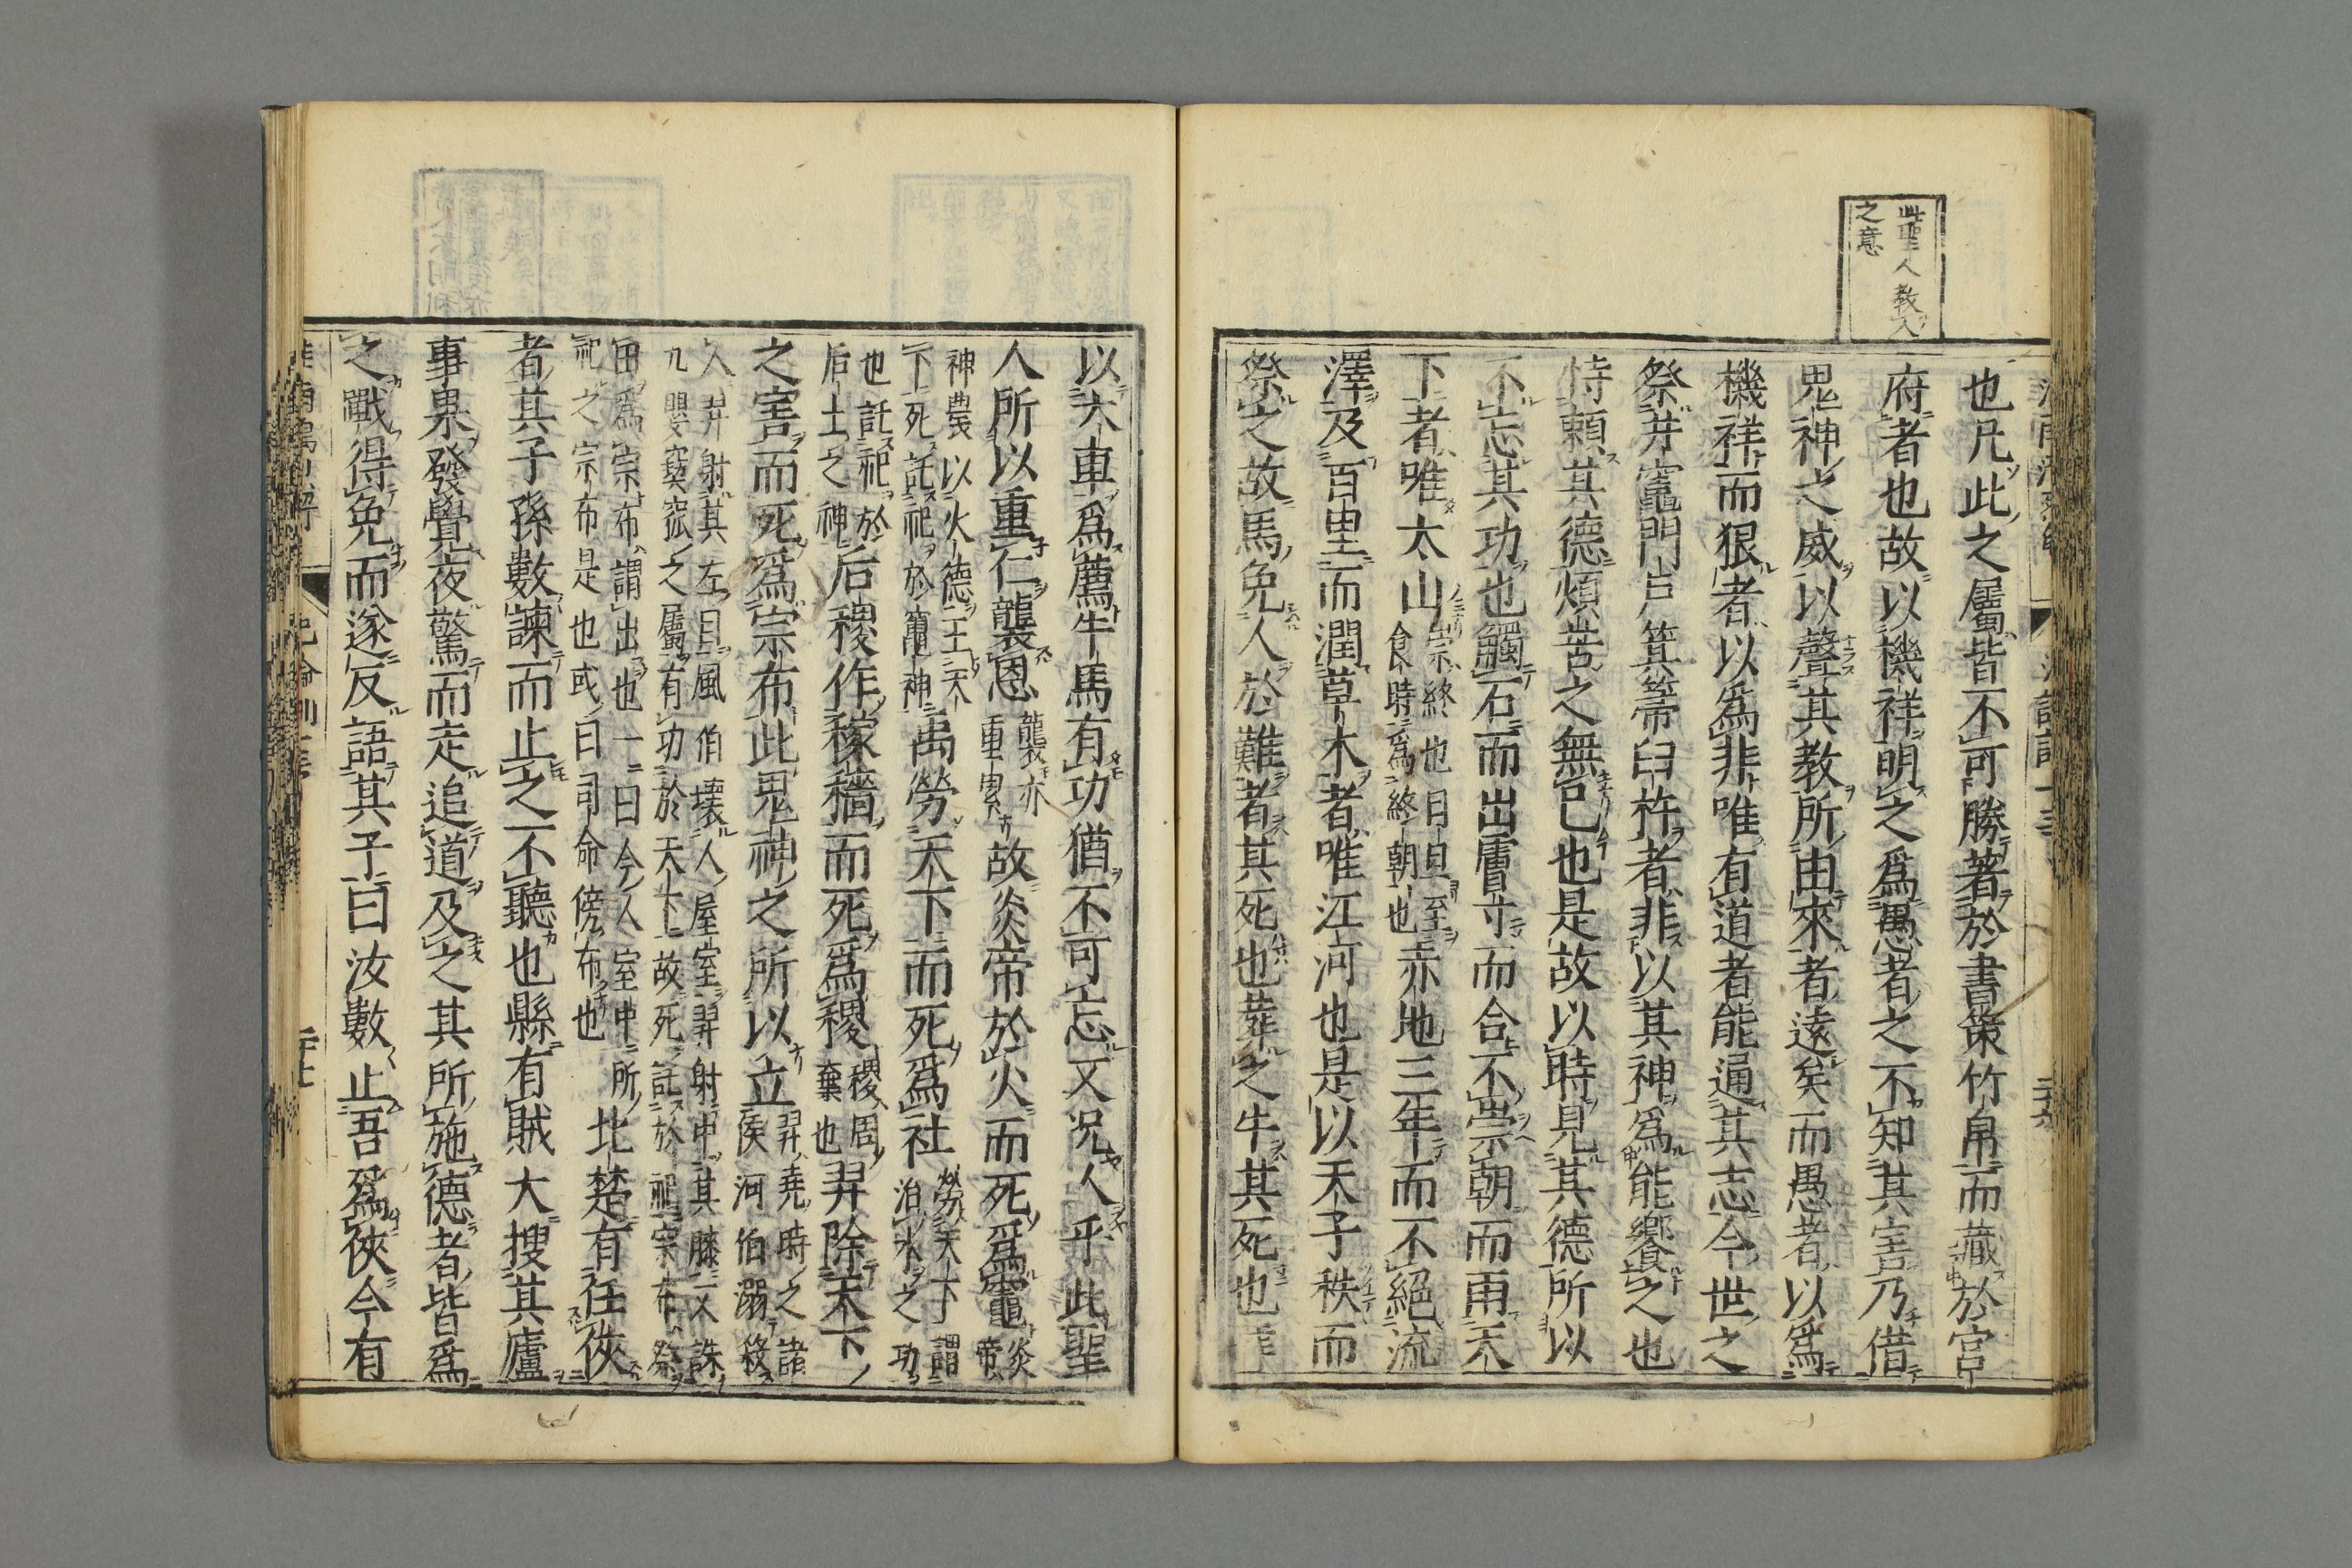 此聖人教人
之意
也凡此之屬皆不可勝著於書策竹帛而藏於宮
府者也故以機祥明之爲愚者之不知其害乃借
鬼神之威以聲其教所由來者遠矣而愚者以爲
機祥而狠者以爲非唯有道者能通其志今世之
祭井竈門戶箕箒臼杵者非以其神爲能饗之也
恃賴其德煩苦之無已也是故以時見其德所以
不忘其功也觸石而出膚寸而合不崇朝而雨天
下者唯太山崇終也日旦至食時爲終朝也赤地三年而不絕流
澤及百里而潤草木者唯江河也是以天子秩而
祭之故馬免人於難者其死也葬之牛其死也葬
以大車爲薦牛馬有功猶不可忘又况人乎此聖
人所以重仁襲恩襲亦重累故炎帝於火而死爲竈炎帝
神農以火德王天下死託祀於竈神禹勞天下而死爲社勞天下謂治水之功
也託祀於后土之神后稷作稼穡而死爲稷稷周棄也羿除天下
之害而死爲宗布此鬼神之所以立羿堯時之諸侯河伯溺殺
人羿射其左目風伯壞人屋室羿射中其膝又誅九嬰窫窳之屬有功於天下故死託於祀宗布祭
田爲宗布謂出也一曰今人室中所祀之宗布是也或曰司命傍布也北楚有任俠
者其子孫數諫而止之不聽也縣有賊大搜其廬
事果發覺夜驚而走追道及之其所施德者皆爲
之戰得免而遂反語其子曰汝數止吾爲俠今有